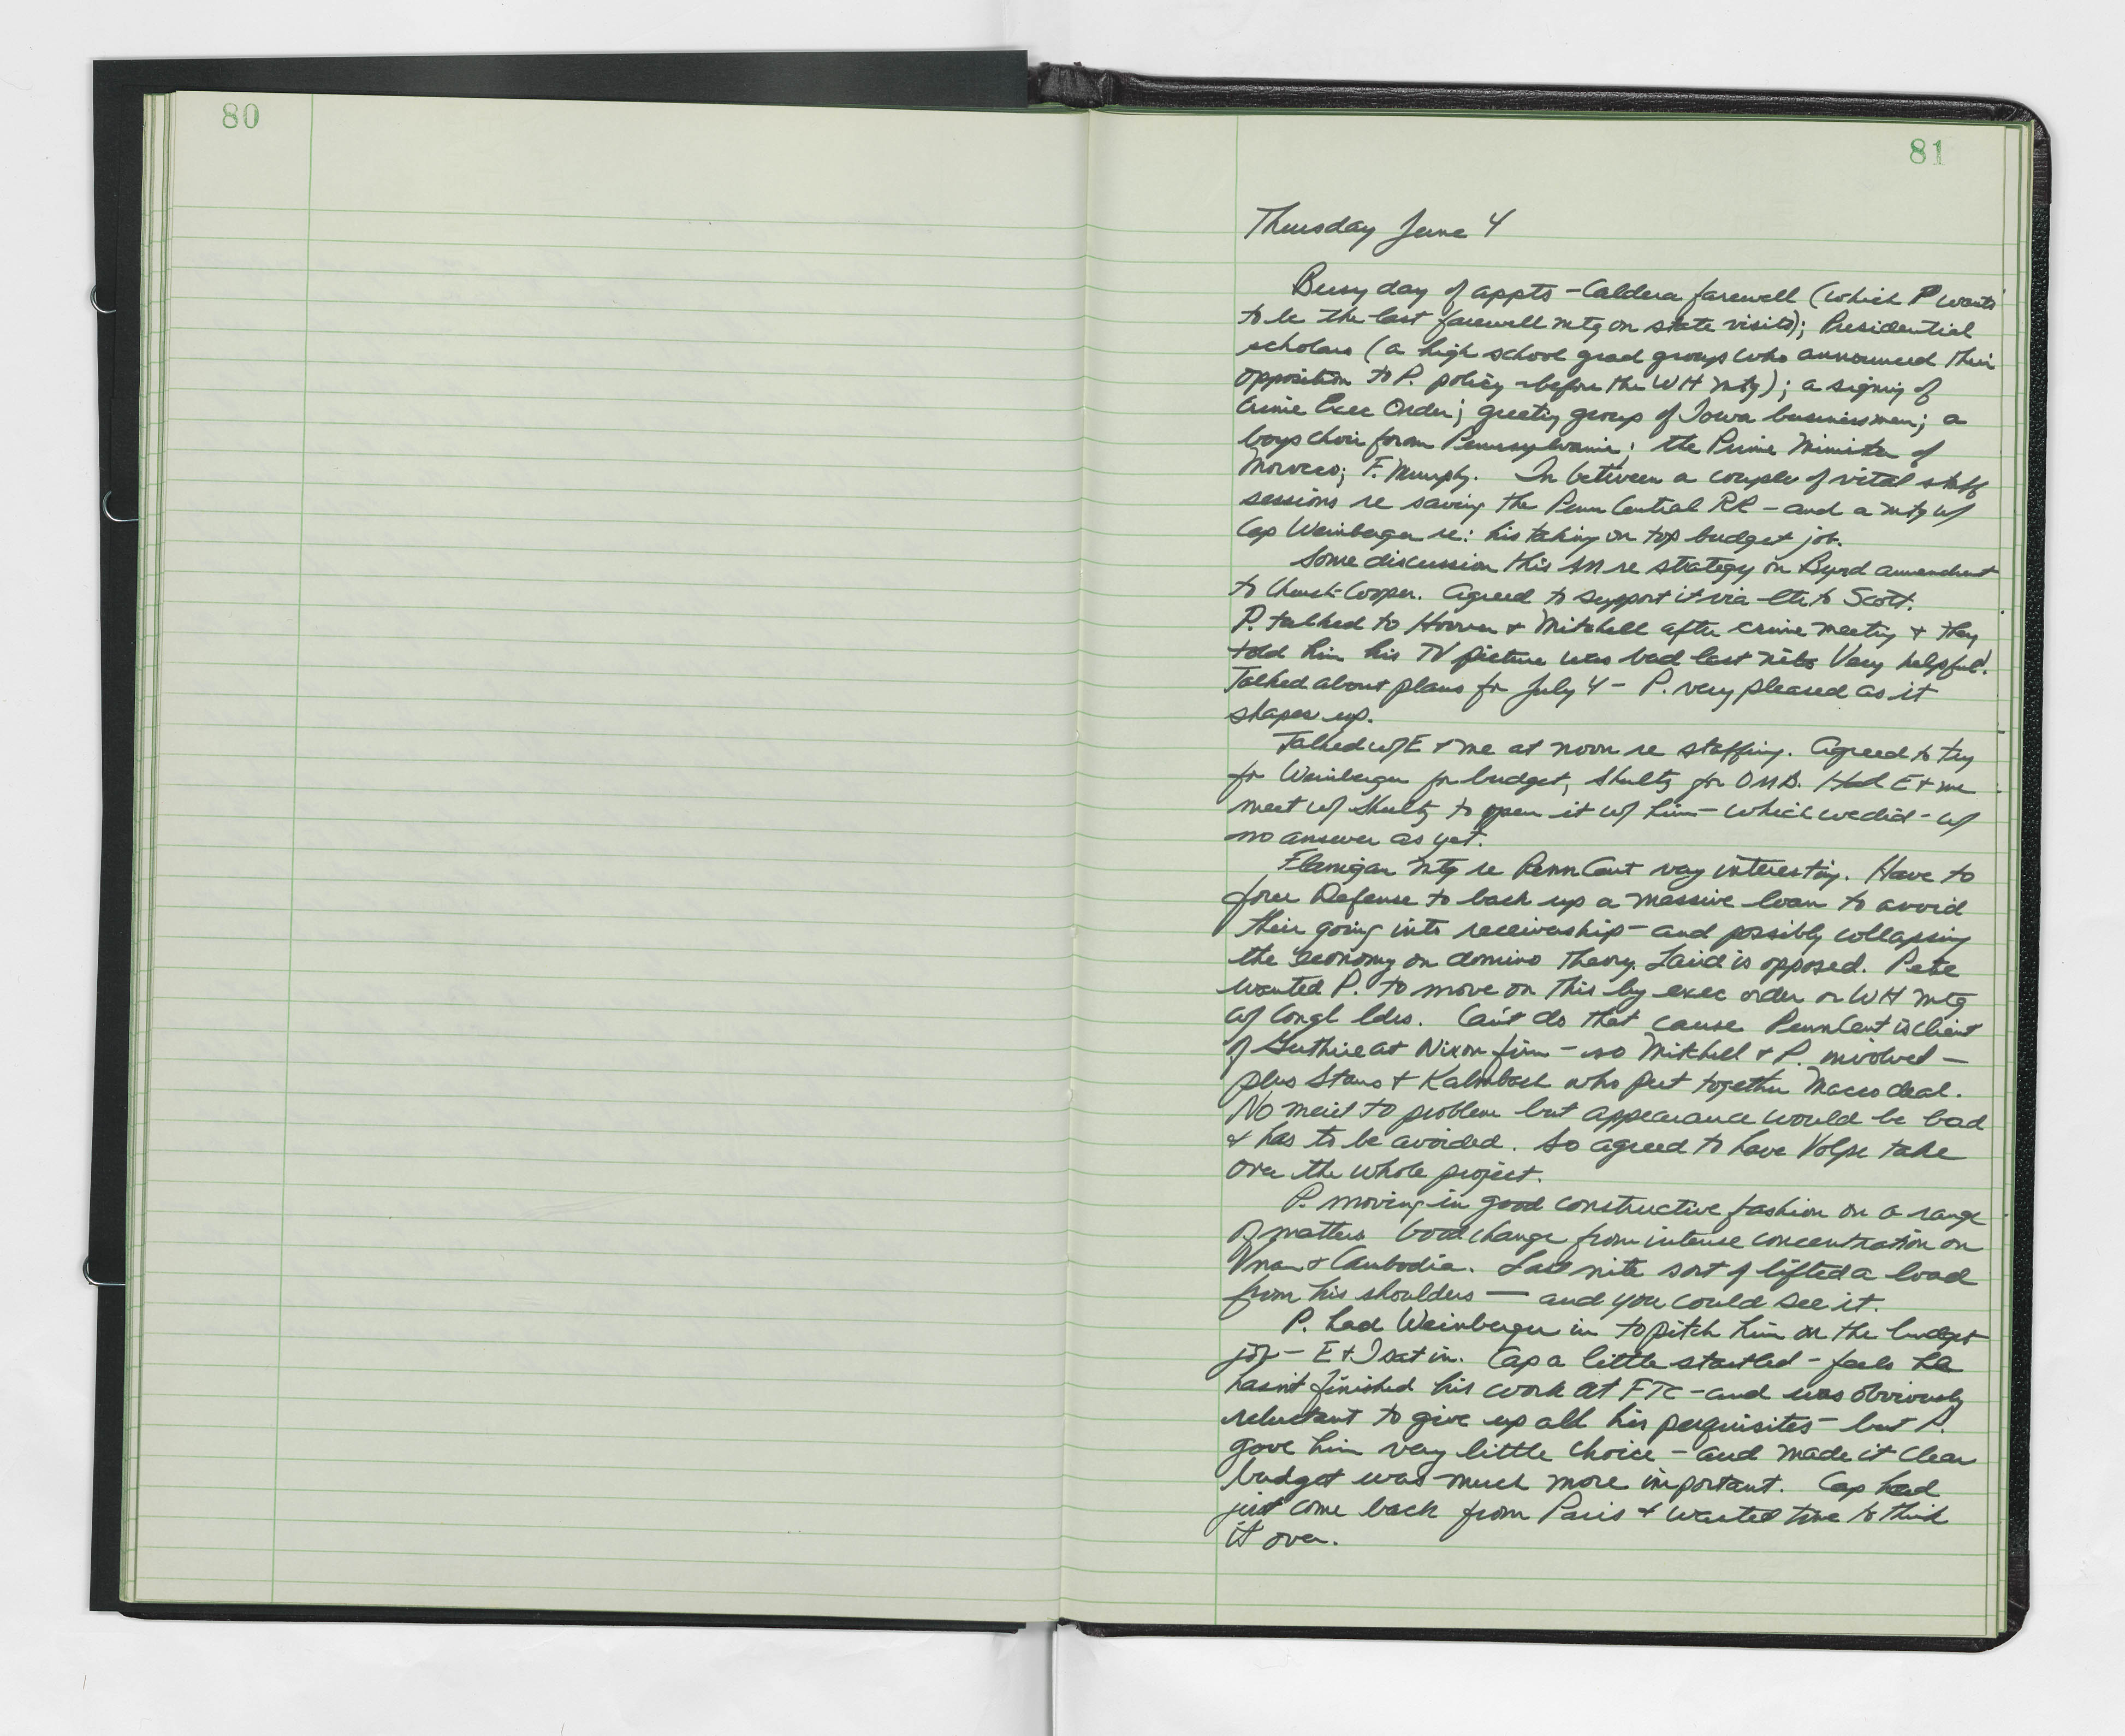 80
81
Thursday June 4
Busy day of appts - Caldera farewell (which P wants
to be the last farewell mtg on state visits); Presidential
scholars (a high school grad groups who announced their
opposition to P. policy - before the WH mtg); a signing of
Crime Exec Order; greeting group of Iowa businessmen; a
boys choir from Pennsylvania; the Prime Minister of
Morocco; F. Murphy. In between a couple of vital staff
sessions re saving the Penn Central RR - and a mtg w/
Cap Weinberger re: his taking on top budget job.
Some discussion this AM re strategy on Byrd amendment
to Church-Cooper. Agreed to support it via ltr to Scott.
P. talked to Hoover & Mitchell after crime meeting & they
told him his TV picture was bad last nite. Very helpful!
Talked about plans for July 4 - P. very pleased as it
shapes up.
Talked w/ E & me at noon re staffing. Agreed to try
for Weinberger for budget, Shultz for OMB. Had E & me
meet w/ Shultz to open it w/ him - which we did - w/
no answer as yet.
Flanigan mtg re Penn Cent very interesting. Have to
force Defense to back up a massive loan to avoid
their going into receivership - and possibly collapsing
the economy on domino theory. Laird is opposed. Pete
wanted P. to move on this by exec order or WH mtg
w/ Congl ldrs. Can't do that cause Penn Cent is client
of Guthrie at Nixon firm - so Mitchell & P. involved -
plus Stans & Kalmbach who put together Macco deal.
No merit to problem but appearance would be bad
& has to be avoided. So agreed to have Volpe take
over the whole project.
P. moving in good constructive fashion on a range
of matters. Good change from intense concentration on
Vnam & Cambodia. Last nite sort of lifted a load
from his shoulders - and you could see it.
P. had Weinberger in to pitch him on the budget
job - E & I sat in. Cap a little startled - feels he
hasn't finished his work at FTC - and was obviously
reluctant to give up all his perquisites - but P.
gave him very little choice - and made it clear
budget was much more important. Cap had
just come back from Paris & wanted time to think
it over.